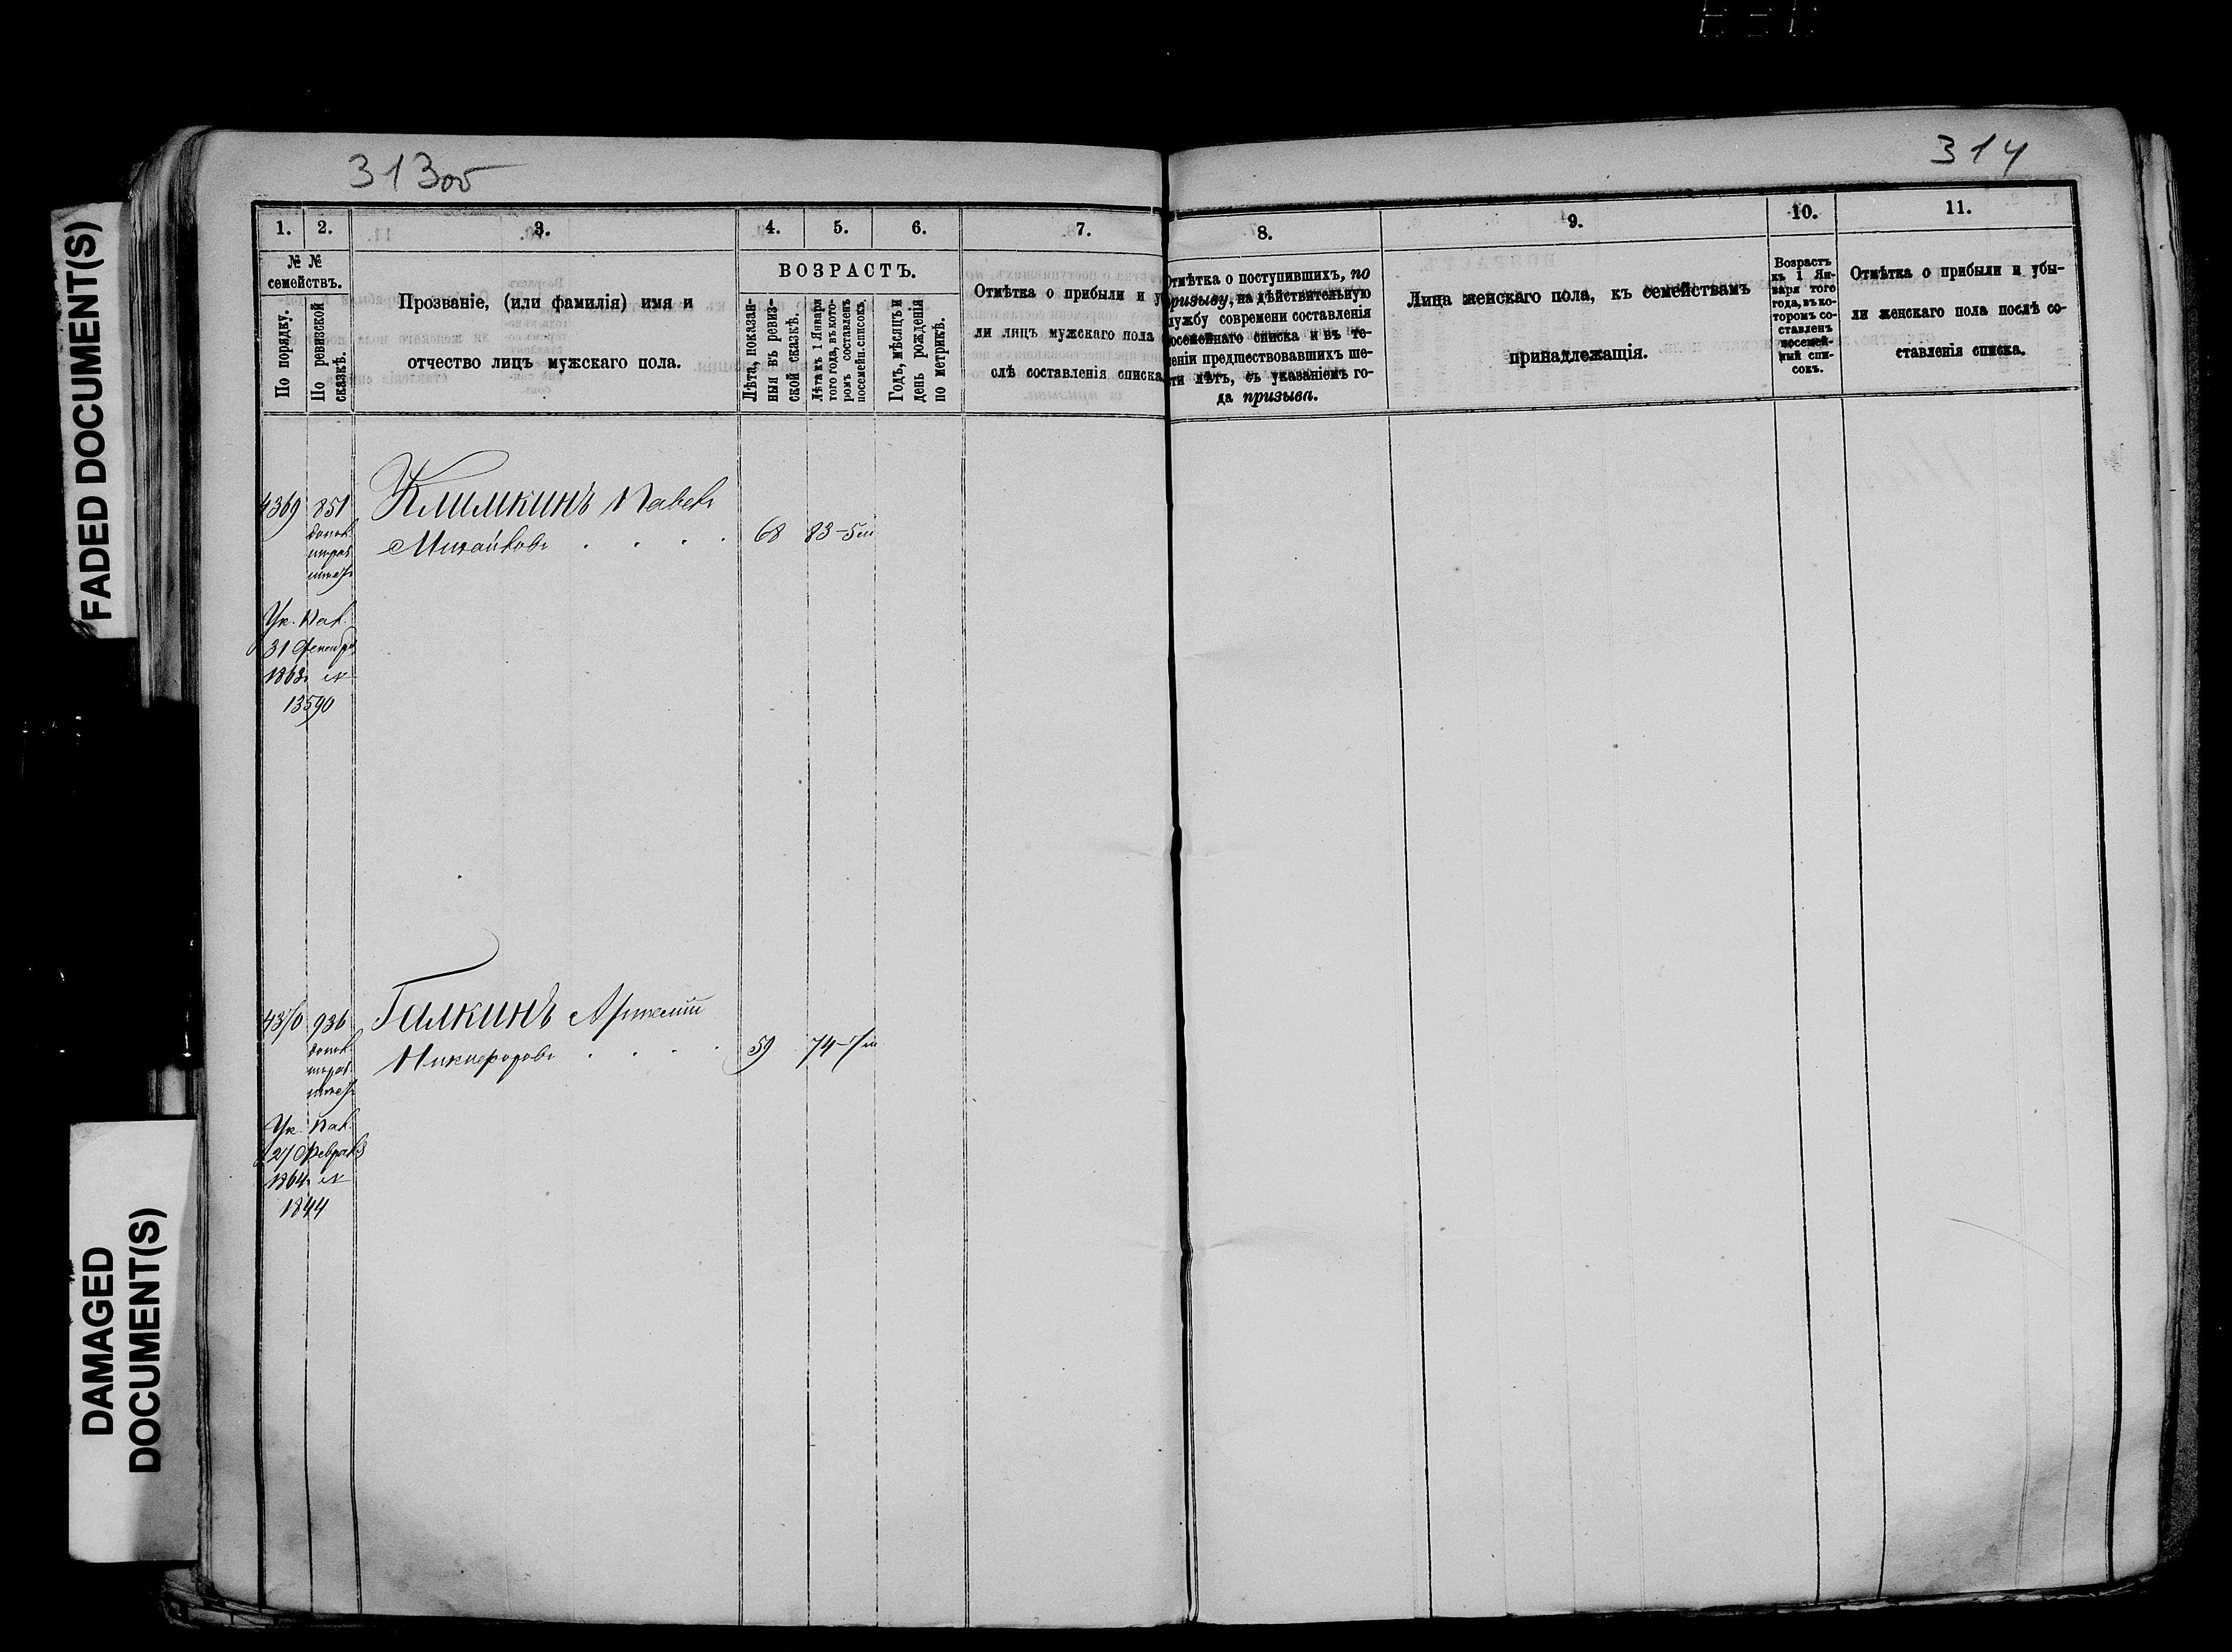 313об
314
FADED DOCUMENT(S)
DAMAGED
DOCUMENT(S)
1.
2.
3.
4.
5.
6.
7.
8.
9.
10.
11.
№ №
семействъ.
По порядку.
По ревизской
сказкѣ.
Прозваніе, (или фамилія) имя и
отчество лицъ мужскаго пола.
ВОЗРАСТЪ.
Лѣта, показан-
ныя въ ревиз-
ской сказкѣ.
Лѣта къ 1 Января
того года, въ кото-
ромъ составленъ
посемейн. списокъ.
Годъ, мѣсяцъ и
день рожденія
по метрикѣ.
Отмѣтка о прибыли и у
ли лицъ мужскаго пола
слѣ составленія списка
Отмѣтка о поступившихъ, по
призыву, на дѣйствительную
лужбу современи составленія
посемейнаго списка и въ те-
ченіи предшествовавшихъ ше-
сти лѣтъ, съ указаніемъ го-
да призыва.
Лица женскаго пола, къ семействамъ
принадлежащія.
Возрастъ
къ 1 Ян-
варя того
года, въ ко-
торомъ со-
ставленъ
посемей-
ный спи-
сокъ.
Отмѣтка о прибыли и убы-
ли женскаго пола послѣ со-
ставленія списка.
4369 851 Климкинъ Павелъ
Михайловъ . . . . 68 83-5м
Ук. Пал.
31 Декабря
1863г №
13590
4370 936 Галкинъ Артемій
Никифоровъ . . . . 59 74-7м
Ук. Пал.
27 Февраля
1864г №
1844